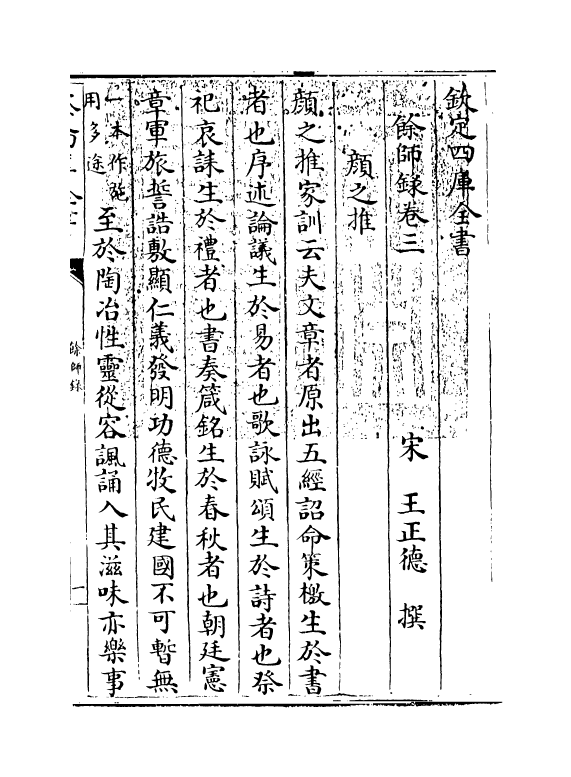 欽定四庫全書
餘師録卷三
宋　王正德　撰
顔之推
顔之推家訓云夫文章者原出五經詔命策檄生於書
者也序述論議生於易者也歌詠賦頌生於詩者也祭
祀哀誄生於禮者也書奏箴銘生於春秋者也朝廷憲
章軍旅誓誥敷顯仁義發明功德牧民建國不可暫無
一本作施
用多途
至於陶冶性靈從容諷誦入其滋味亦樂事
餘師録
一